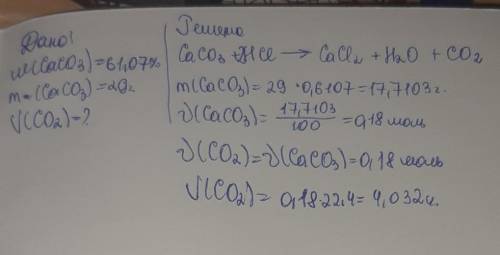 Дано!
ω(CaCO3)=61,07%
m(CaCO3)=29г
V(CO2)-?
Решено
CaCO3 + HCl → CaCl2 + H2O + CO2
m(CaCO3)=29*0,6107=17,7103г.
ν(CaCO3)=17,7103/100=0,18 моль
ν(CO2)=ν(CaCO3)=0,18 моль
V(CO2)=0,18*22,4=4,032л.